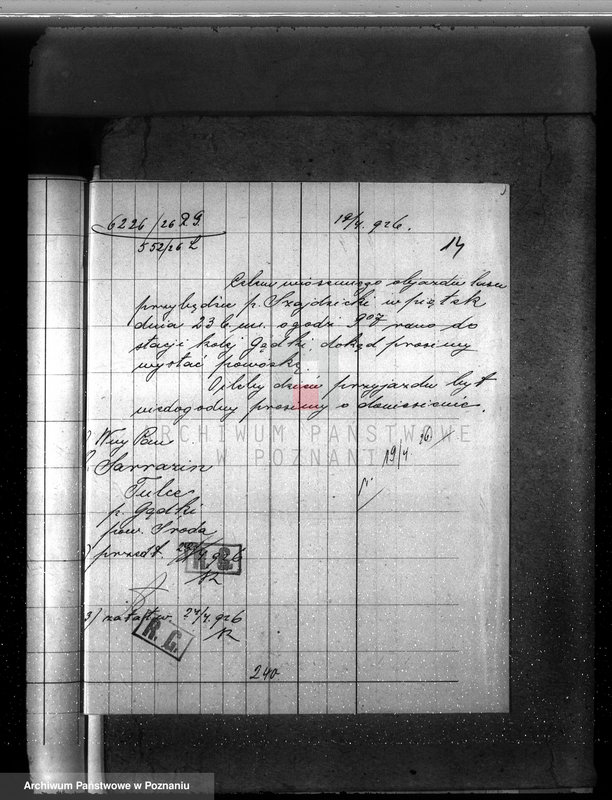 6226/26 R.G.
552/26 L
19/4. 926.
14
Celem wiosennego objazdu lasu
przybędzie p. Szajdzicki w piątek
dnia 23 b. m. o godz. 9⁰⁷ rano do
stacji kolej Gądki, dokąd prosimy
wysłać powózkę.
Gdyby dzień przyjazdu był
niedogodny prosimy o doniesienie.
ARCHIWUM PAŃSTWOWE
W POZNANIU
Wny Pan
Sarrazin
Tulce
p. Gądki
pow. Środa
19/4 26
) przedł. /4. 926
R. G.
3) załatw. 24/4. 926
R. G.
240
Archiwum Państwowe w Poznaniu